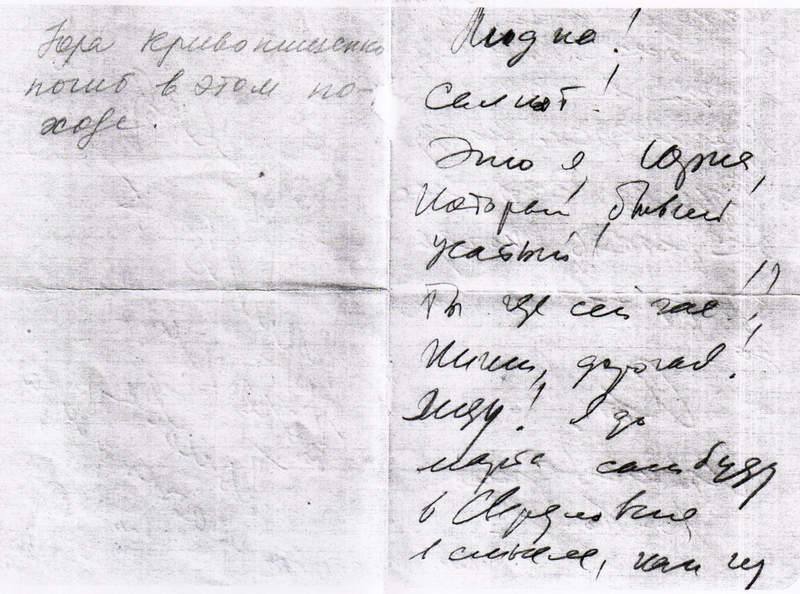 Юра Кривонищенко
погиб в этом по-
ходе.
Лидка!
Салют!
Это я, Юрка,
который бывший
усатый!
Ты где сейчас!?
Пиши, дорогая!
Жду! Я до
марта сам буду
в Свердловске
в смысле, как